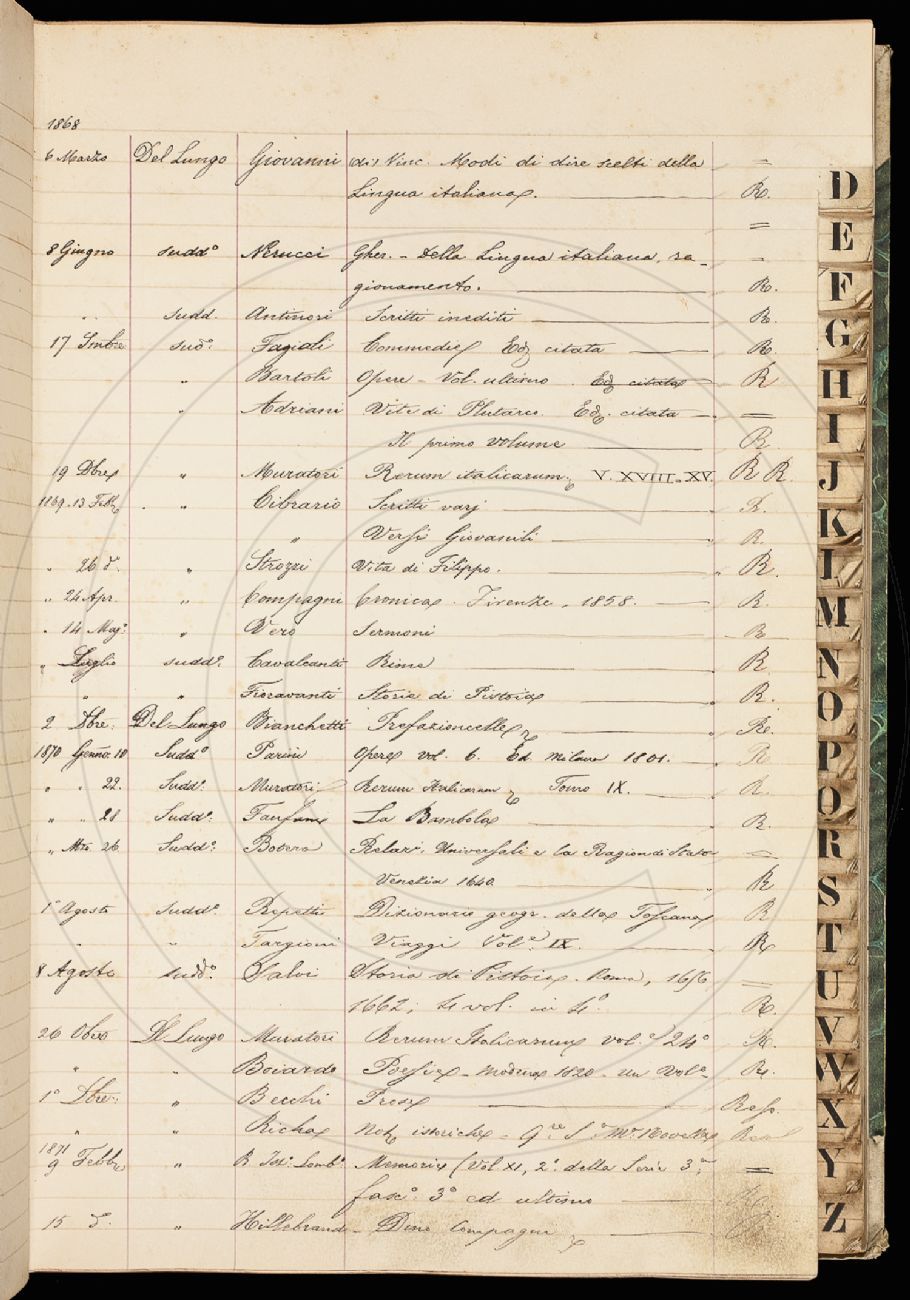 1868
6 Marzo Del Lungo Giovanni (di) Vinc. Modi di dire scelti della =
Lingua italiana. R.
=
8 Giugno sudd.º Nerucci Gher. - Della Lingua italiana, ra- =
gionamento. R.
" sudd. Antinori Scritti inediti R.
17 Smbre sud.º Fagiuoli Commedie Ed. citata R.
" Bartoli Opere - Vol. ultimo Ed. citata R
" Adriani Vite di Plutarco Ed. citata =
Il primo volume R
19 Dbre " Muratori Rerum italicarum V. XVIII. XV R R.
1869. 13 Febb. " Cibrario Scritti varj R.
" Versi Giovanili R.
" 26 d.º " Strozzi Vita di Filippo. R.
" 24 Apr. " Compagni Cronica. Firenze, 1858. R.
" 14 Mag. " Vero Sermoni R
" Luglio sudd.º Cavalcanti Rime R
" " Fioravanti Storia di Pistoia R.
2 Dbre. Del Lungo Bianchetti Prefazioncelle Re.
1870 Genno. 10 Sudd.º Parini Opere vol. 6. Ed. Milano 1801. R
" " 22. Sudd.º Muratori Rerum Italicarum Tomo IX. R.
" " 28 Sudd.º Fanfani La Bambola R.
" Mzo. 26 Sudd.º Botero Relaz. Universali e la Ragion di Stato =
Venezia 1640. R
1º Agosto sudd.º Repetti Dizionario geogr. della Toscana R
" " Targioni Viaggi Vol.e IX. R
8 Agosto sudd.º Salvi Storia di Pistoia. Roma, 1656, =
1662; 4 vol. in 4.º R.
26 Obre Del Lungo Muratori Rerum Italicarum vol.e 24º R.
" " Boiardo Poesie - Modena 1820 - un Vol.º Re.
1º Dbre. " Becchi Prose Resp.
" " Richa Not. istoriche - q.re S.ª M.ª Novella
1871
9 Febb. " R. Ist.º Lomb.º Memorie (Vol XI, 2.º della Serie 3.ª, =
fasc.º 3º ed ultimo
15 d.º " Hillebrand - Dino Compagni
D
E
F
G
H
I
J
K
L
M
N
O
P
Q
R
S
T
U
V
W
X
Y
Z